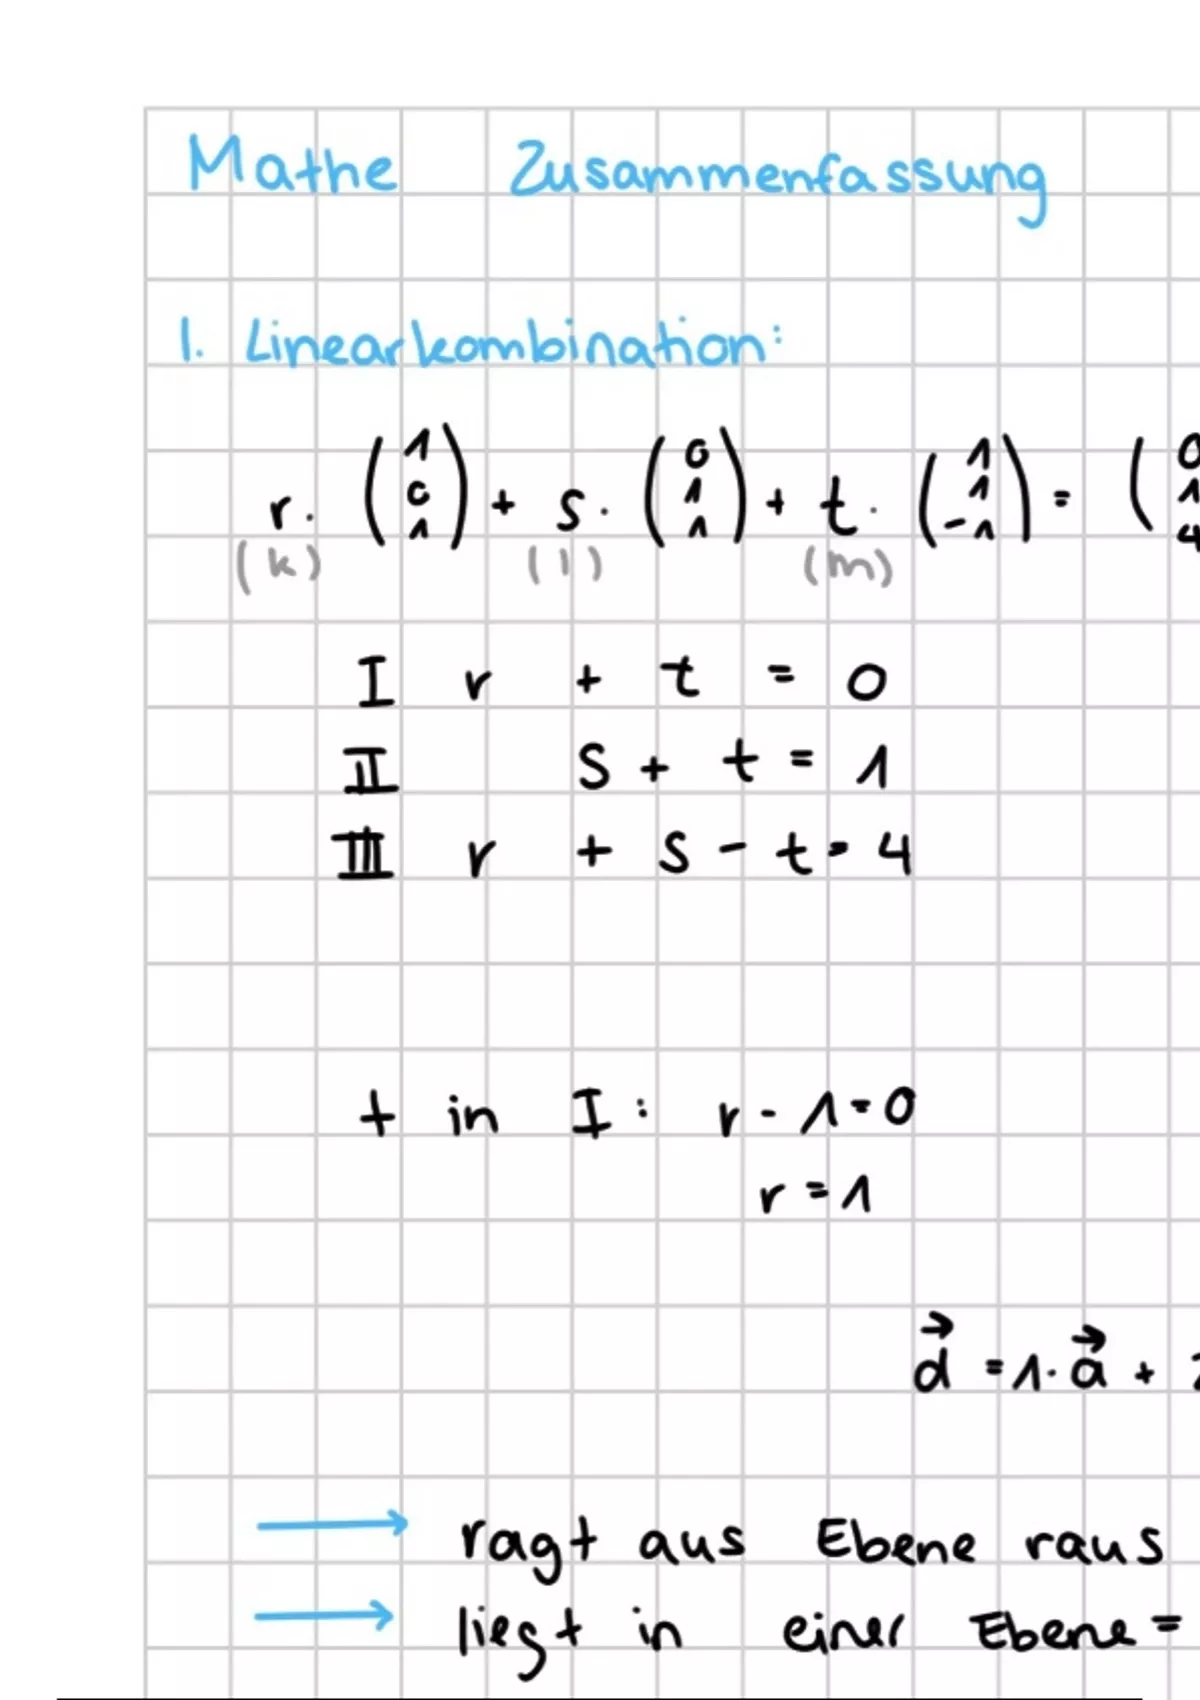 Mathe Zusammenfassung
1. Linearkombination:
r · (1 0 1) + s · (0 1 1) + t · (1 1 -1) = (0 1 4
(k) (l) (m)
I r + t = 0
II s + t = 1
III r + s - t = 4
t in I: r - 1 = 0
r = 1
d⃗ = 1 · a⃗ +
ragt aus Ebene raus
liegt in einer Ebene =